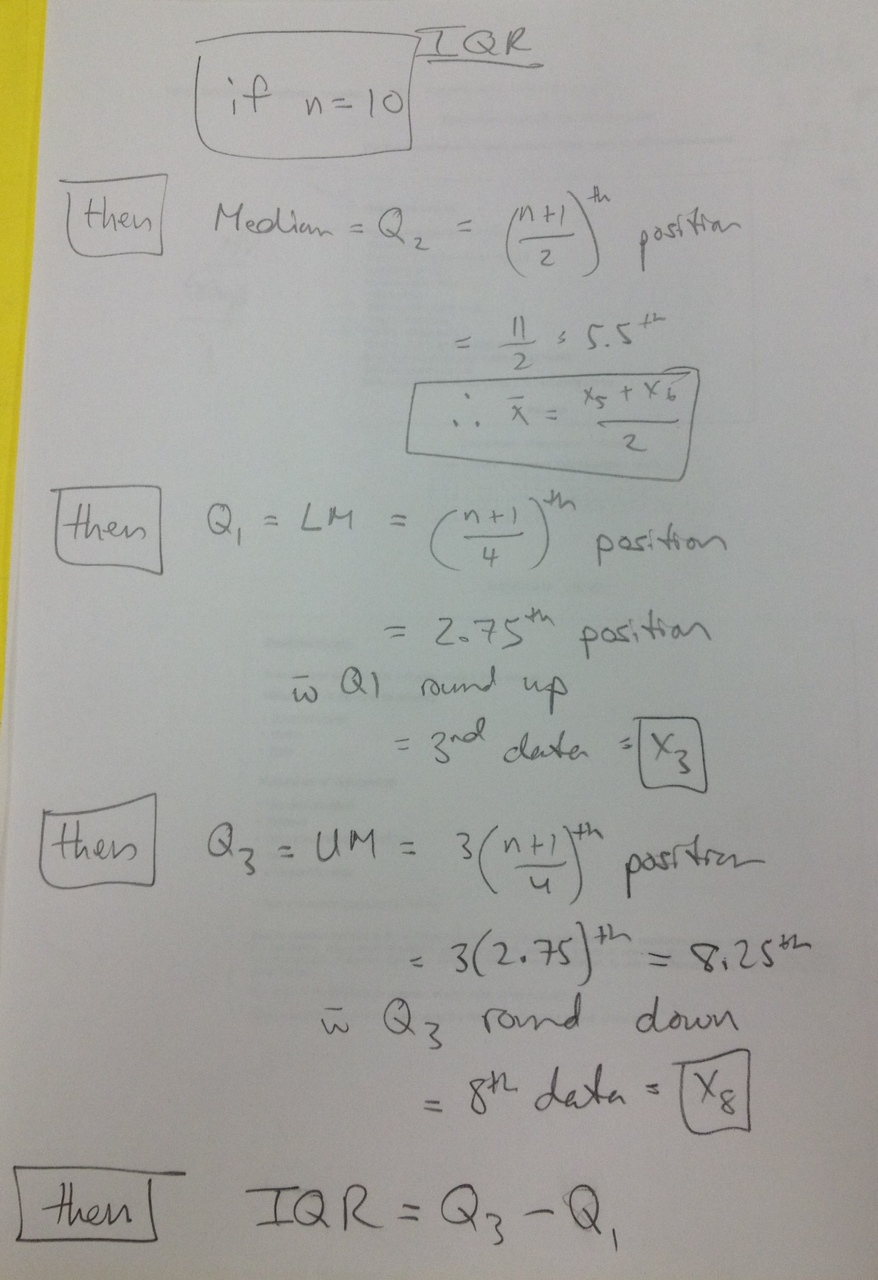 IQR
if n=10
then Median = Q₂ = ((n+1)/2)ᵗʰ position
= 11/2 = 5.5ᵗʰ
∴ x̄ = (x₅ + x₆)/2
then Q₁ = LM = ((n+1)/4)ᵗʰ position
= 2.75ᵗʰ position
w̄ Q1 round up
= 3ʳᵈ data = x₃
then Q₃ = UM = 3((n+1)/4)ᵗʰ position
= 3(2.75)ᵗʰ = 8.25ᵗʰ
w̄ Q₃ round down
= 8ᵗʰ data = x₈
then IQR = Q₃ − Q₁